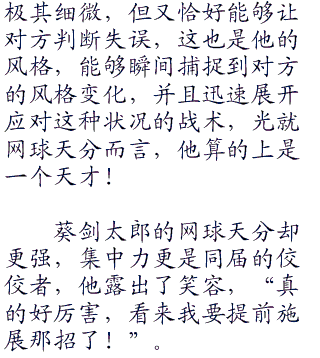 极其细微，但又恰好能够让
对方判断失误，这也是他的
风格，能够瞬间捕捉到对方
的风格变化，并且迅速展开
应对这种状况的战术，光就
网球天分而言，他算的上是
一个天才！
葵剑太郎的网球天分却
更强，集中力更是同届的佼
佼者，他露出了笑容，“真
的好厉害，看来我要提前施
展那招了！”。